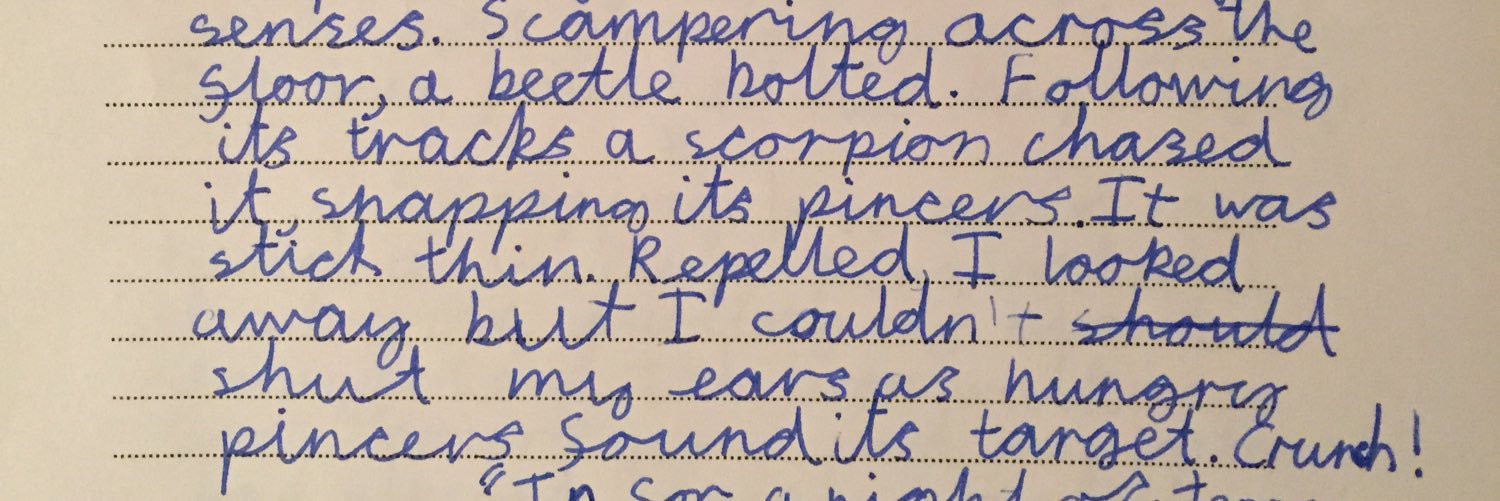 senses. Scampering across the
floor, a beetle bolted. Following
its tracks a scorpion chased
it, snapping its pincers. It was
stick thin. Repelled, I looked
away but I couldn't should
shut my ears as hungry
pincers found its target. Crunch!
"In for a night of